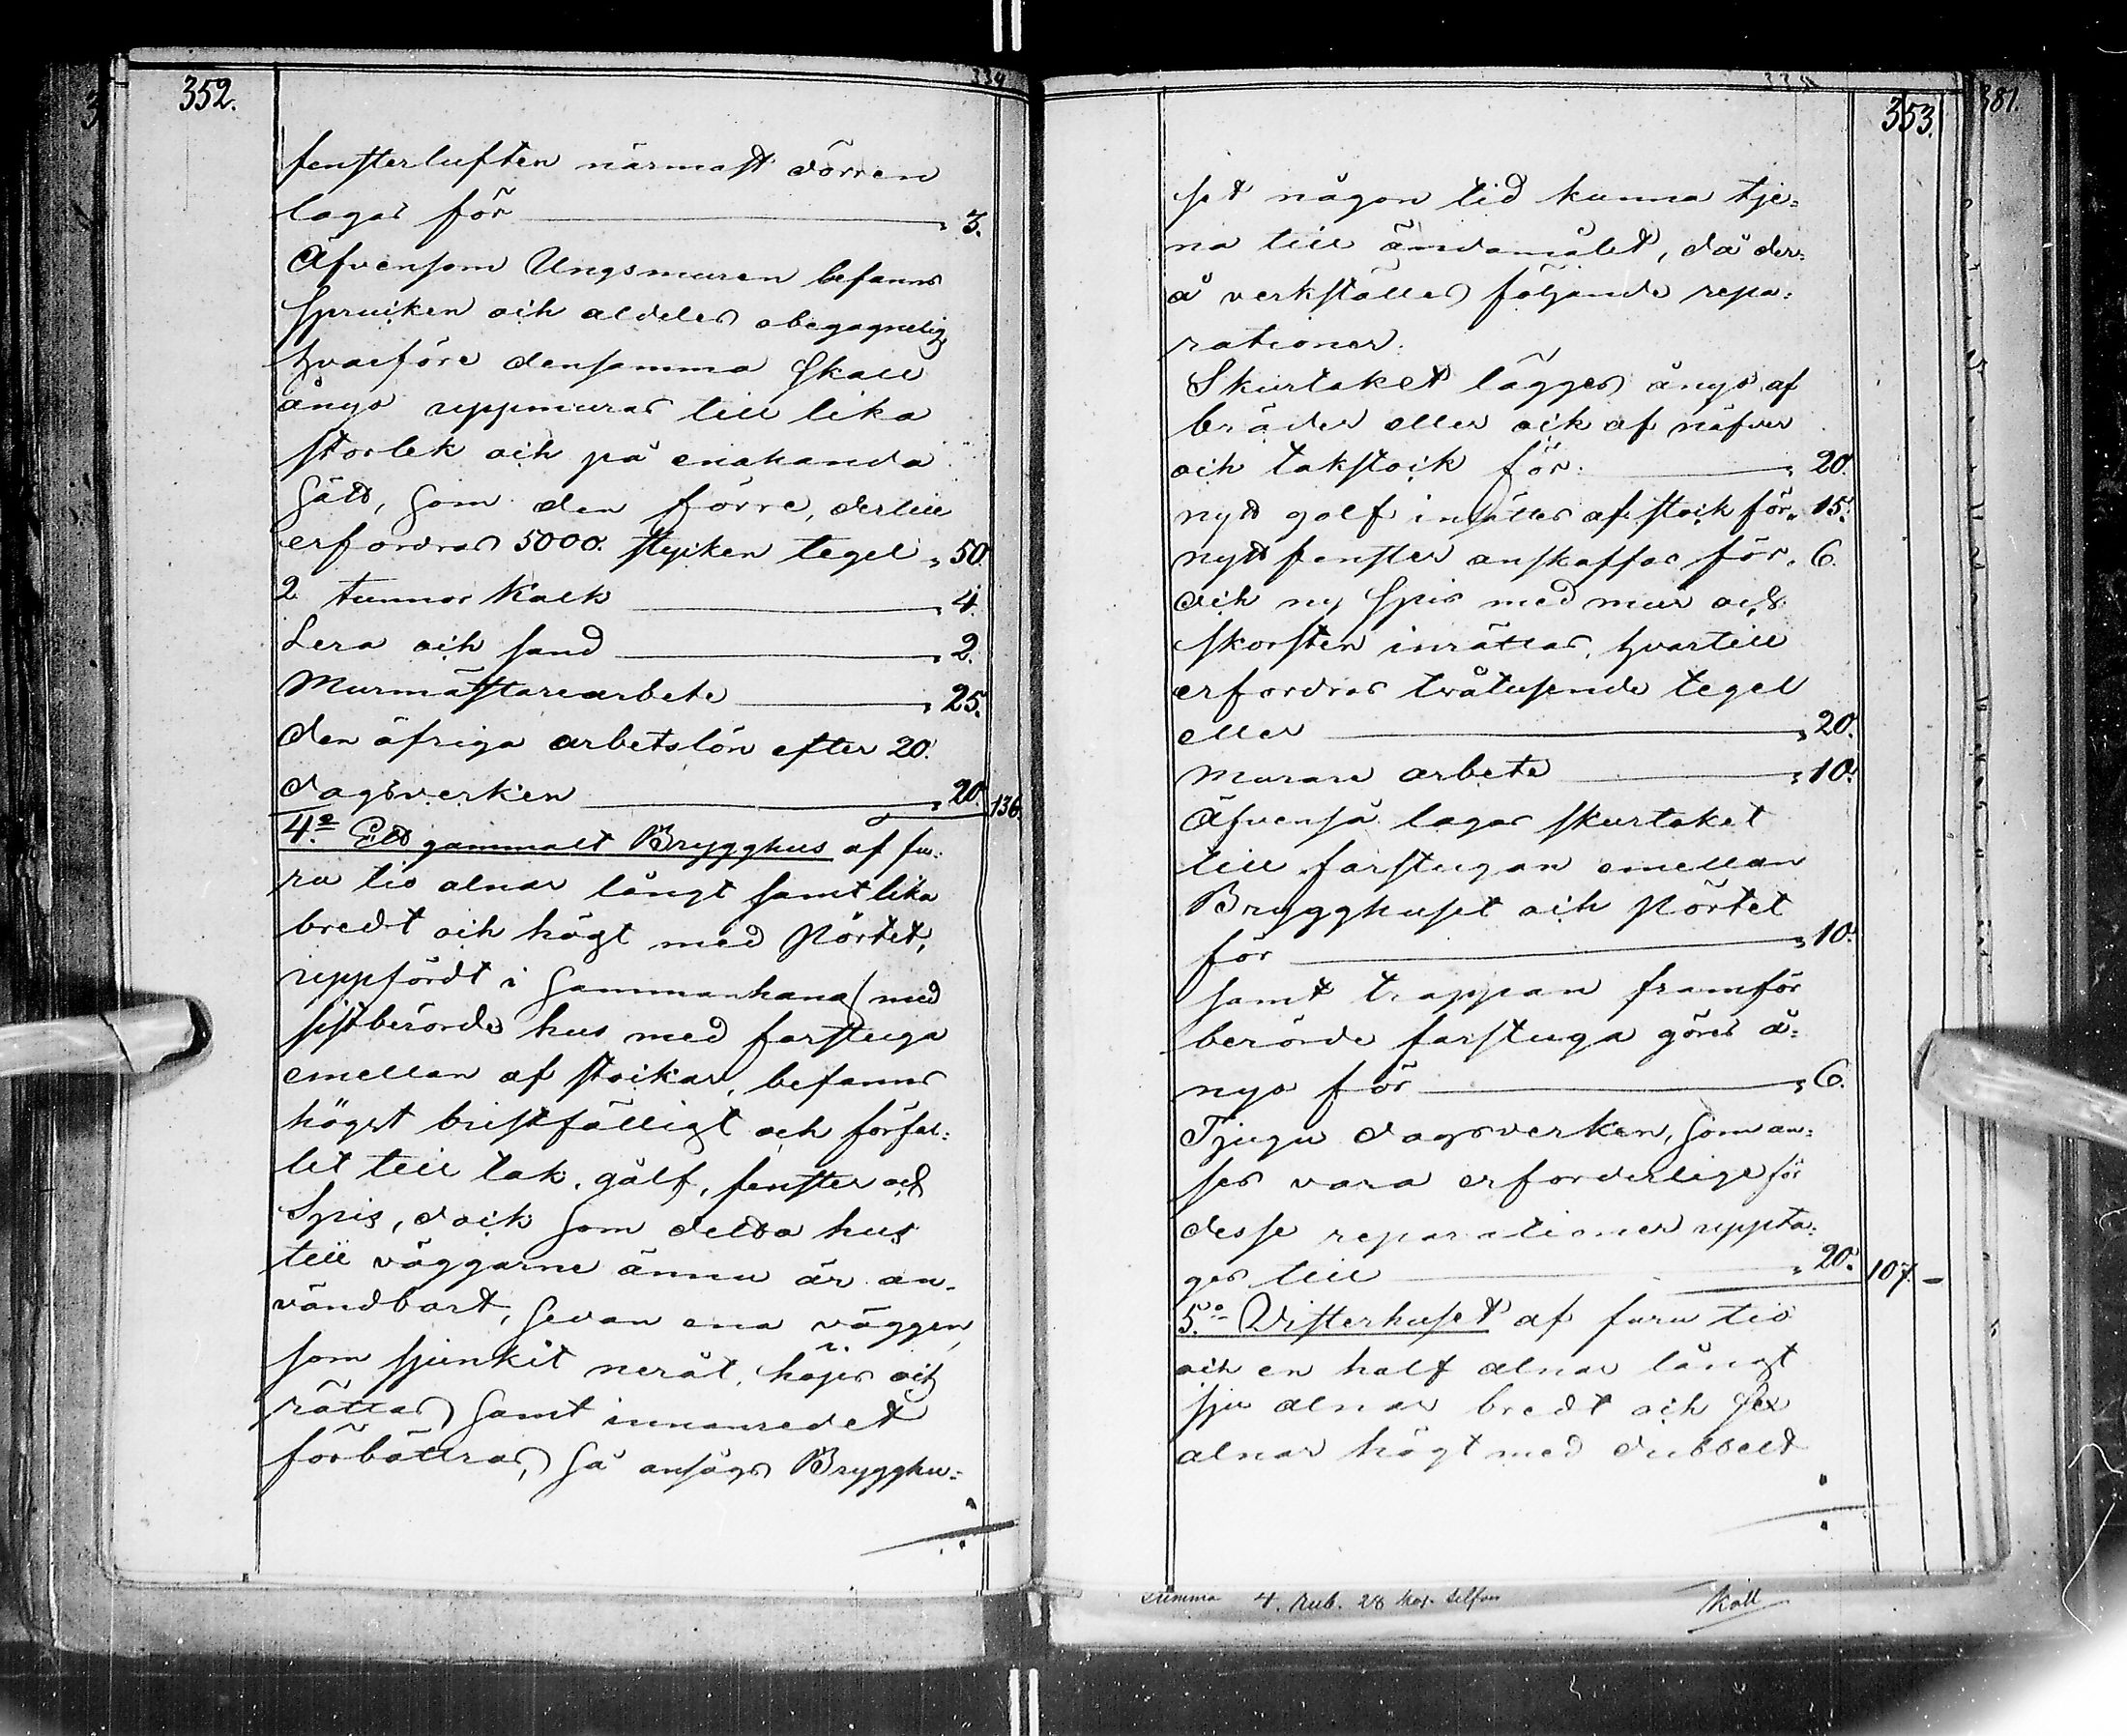 352.
334
fensterluften närmast dörren
lagas för „ 3.
Äfvensom Ungsmuren befanns
sprucken och aldeles obegagnelig
hvarföre densamma skall
ånyo uppmuras till lika
storlek och på enahanda
sätt, som den förre, dertill
erfordras 5000. stycken tegel „ 50.
2 tunnor Kalk „ 4.
Lera och sand „ 2.
Murmästarearbete „ 25.
den öfriga arbetslön efter 20.
dagsverken „ 20. 136.
4:o Ett gammalt Brygghus af fu:
ru tio alnar långt samt lika
bredt och högt med Pörtet,
uppfördt i sammanhang med
sistberörde hus med farstuga
emellan af stockar, befanns
högst bristfälligt och förfal:
let till tak, gålf, fenster och
Spis, dock som detta hus
till väggarne ännu är an-
vändbart, sedan ena väggen,
som sjunkit neråt, höjes och
rättas samt innanredet
förbättras, så ansågs Brygghu=
353.
381.
set någon tid kunna tje=
na till ändamålet, då der=
å verkställes följande repa=
rationer.
Skurtaket lägges ånyo af
bräder eller ock af näfver
och takstock för „ 20.
nytt golf insättes af stock för „ 15.
nytt fenster anskaffas för „ 6.
och ny Spis med mur och
skorsten inrättas, hvartill
erfordras tvåtusende tegel
eller „ 20.
Murare arbete „ 10.
Äfvenså lagas skurtaket
till farstugan emellan
Brygghuset och Pörtet
för „ 10.
samt trappan framför
berörde farstuga göres å=
nyo för „ 6.
Tjugu dagsverken, som an=
ses vara erforderlige för
desse reparationer uppta=
ges till „ 20. 107 –
5:o Visterhuset af furu tio
och en half alnar långt
sju alnar bredt och sex
alnar högt med dubbelt
summa 4. Rub. 28 kop. silfver